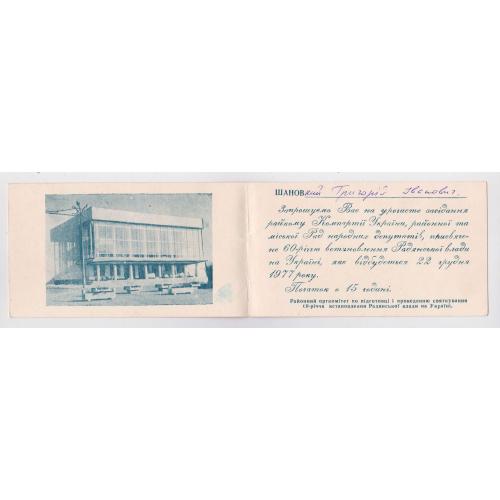 ШАНОВний Григорій Іванович.
Запрошуємо Вас на урочисте засідання
райкому Компартії України, районної та
міської Рад народних депутатів, присвяче-
не 60-річчю встановлення Радянської влади
на Україні, яке відбудеться 22 грудня
1977 року.
Початок о 15 годині.
Районний оргкомітет по підготовці і проведенню святкування
60-річчя встановлення Радянської влади на Україні.